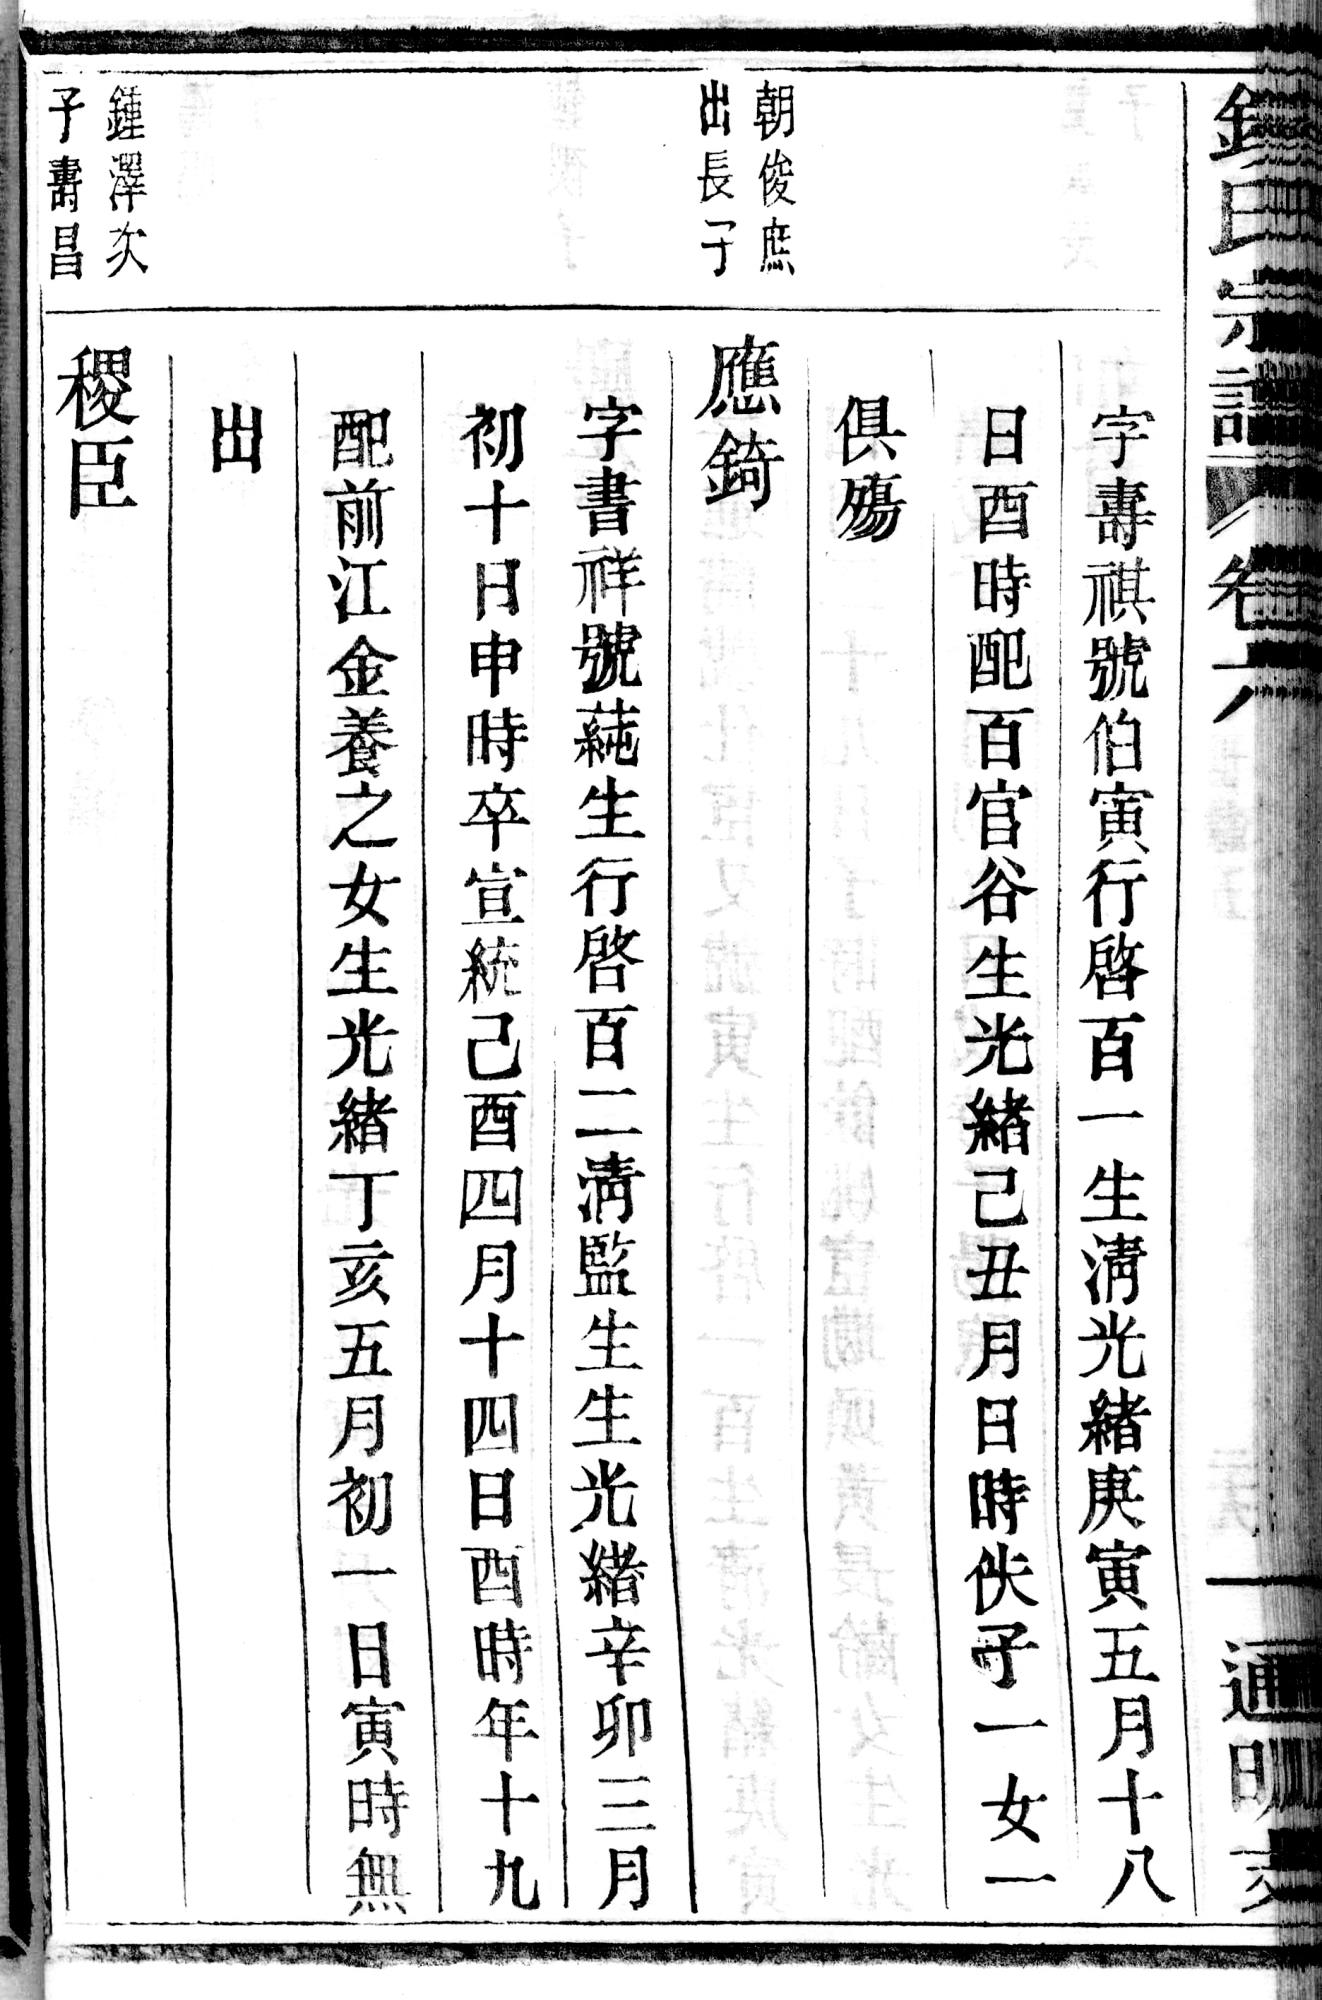 氏宗譜 卷六
字壽祺號伯寅行啓百一生淸光緖庚寅五月十八
日酉時配百官谷生光緖己丑月日時佚子一女一
俱殤
朝俊庶
出長子
應錡
字書祥號蒓生行啓百二淸監生生光緖辛卯三月
初十日申時卒宣統己酉四月十四日酉時年十九
配前江金養之女生光緖丁亥五月初一日寅時無
出
鍾澤次
子壽昌
稷臣